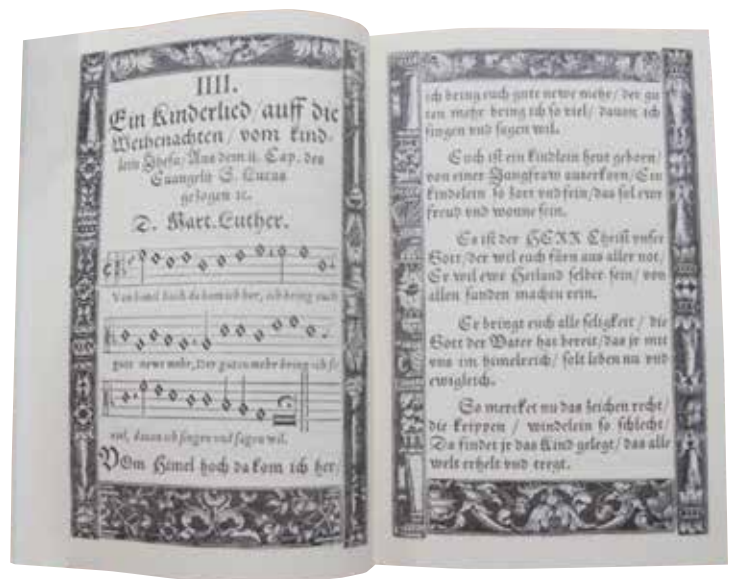 IIII.
Ein Kinderlied auff die
Weihenachten / vom kind-
lein Jhesu / Aus dem ij. Cap. des
Euangelij S. Lucas
gezogen ꝛc.
D. Mart. Luther.
Von himel hoch da kom ich her, ich bring euch
gute newe mehr, Der guten mehr bring ich so
viel, dauon ich singen vnd sagen wil.
VOm Himel hoch da kom ich her /
ich bring euch gute newe mehr / der gu
ten mehr bring ich so viel / dauon ich
singen vnd sagen wil.
Euch ist ein kindlein heut geborn /
von einer Jungfraw auserkorn / Ein
kindelein so zart vnd fein / das sol ewr
freud vnd wonne sein.
Es ist der HERR Christ vnser
Gott / der wil euch fürn aus aller not /
Er wil ewr Heiland selber sein / von
allen sunden machen rein.
Er bringt euch alle seligkeit / die
Gott der Vater hat bereit / das jr mit
vns im himelreich / solt leben nu vnd
ewigleich.
So mercket nu das zeichen recht /
die krippen / windelein so schlecht /
Da findet jr das Kind gelegt / das alle
welt erhelt vnd tregt.